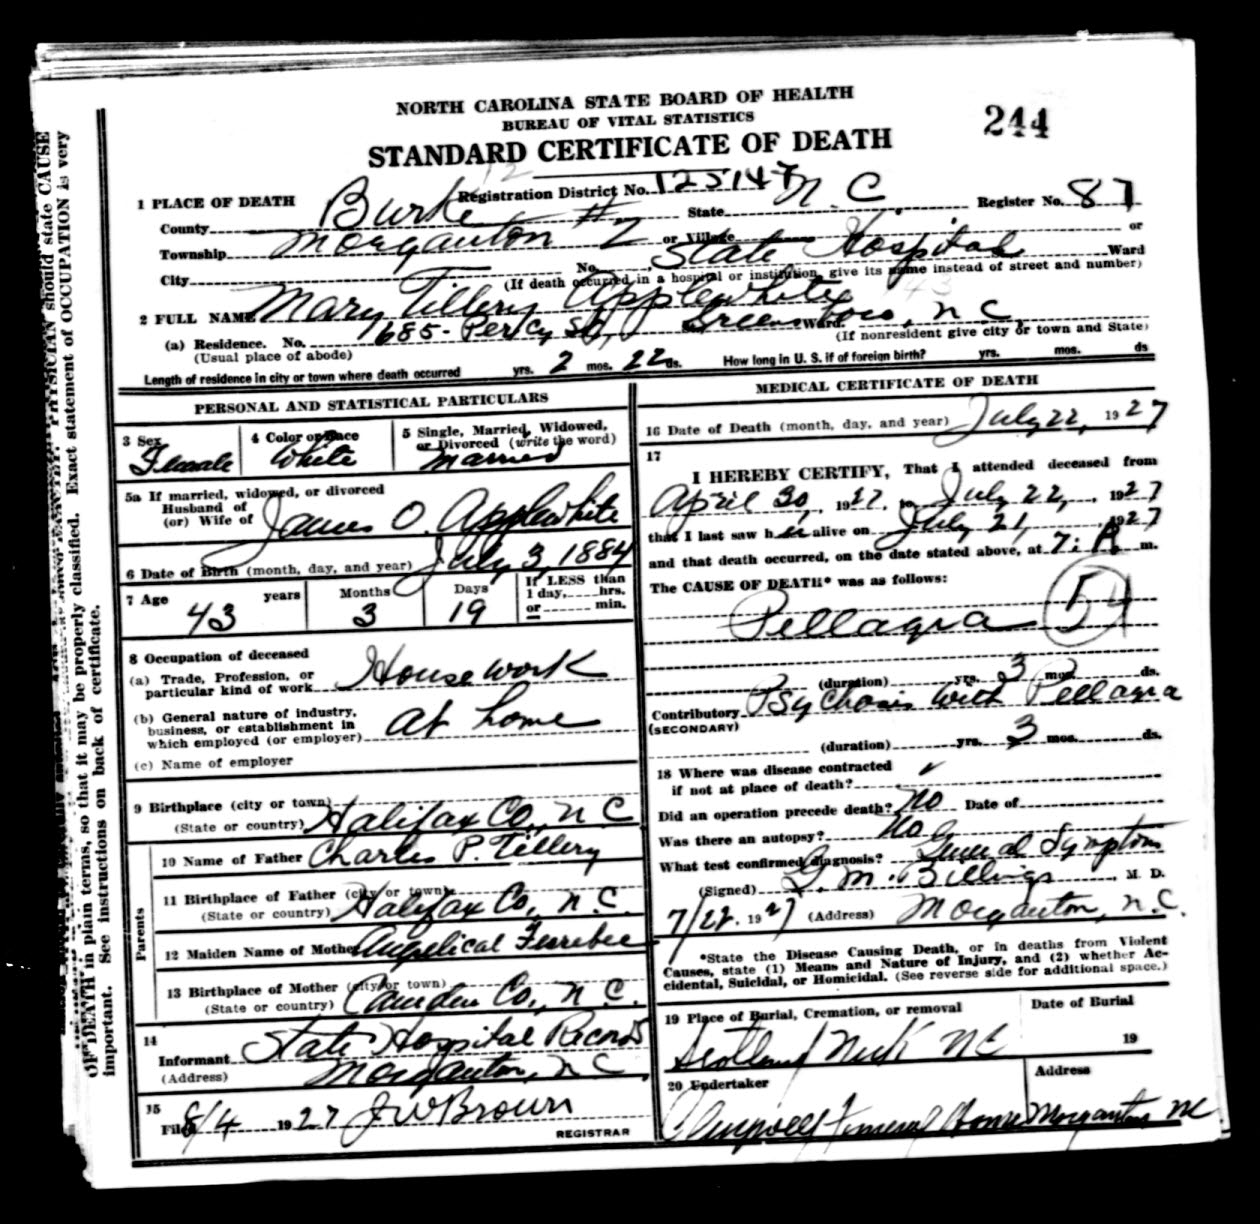 NORTH CAROLINA STATE BOARD OF HEALTH
BUREAU OF VITAL STATISTICS
STANDARD CERTIFICATE OF DEATH
244
1 PLACE OF DEATH
Registration District No. 125147
County Burke State N.C. Register No. 87
Township Morganton # 2 or Village State Hospital or
City No. Ward
(If death occurred in a hospital or institution, give its name instead of street and number)
2 FULL NAME Mary Tillery Applewhite
(a) Residence. No. 685- Percy St., Greensboro, N.C. Ward.
(Usual place of abode) (If nonresident give city or town and State)
Length of residence in city or town where death occurred yrs. 2 mos. 22 ds. How long in U. S. if of foreign birth? yrs. mos. ds
PERSONAL AND STATISTICAL PARTICULARS
3 Sex Female
4 Color or Race White
5 Single, Married, Widowed, or Divorced (write the word) Married
5a If married, widowed, or divorced
Husband of
(or) Wife of James O. Applewhite
6 Date of Birth (month, day, and year) July 3, 1884
7 Age 43 years Months 3 Days 19 If LESS than 1 day, hrs. or min.
8 Occupation of deceased
(a) Trade, Profession, or
particular kind of work House work
(b) General nature of industry,
business, or establishment in
which employed (or employer) at home
(c) Name of employer
9 Birthplace (city or town)
(State or country) Halifax Co., N C
Parents
10 Name of Father Charles P. Tillery
11 Birthplace of Father (city or town)
(State or country) Halifax Co., N.C.
12 Maiden Name of Mother Angelical Ferrebee
13 Birthplace of Mother (city or town)
(State or country) Camden Co., N.C.
14
Informant State Hospital Records
(Address) Morganton, N.C.
15
Filed 8/4 1927 J W Brown
REGISTRAR
MEDICAL CERTIFICATE OF DEATH
16 Date of Death (month, day, and year) July 22, 1927
17
I HEREBY CERTIFY, That I attended deceased from
April 30, 1927, to July 22, 1927
that I last saw her alive on July 21, 1927
and that death occurred, on the date stated above, at 7: m.
The CAUSE OF DEATH* was as follows:
Pellagra 54
(duration) yrs. 3 mos. ds.
Contributory Psychosis with Pellagra
(SECONDARY)
(duration) yrs. 3 mos. ds.
18 Where was disease contracted
if not at place of death? ✓
Did an operation precede death? No Date of
Was there an autopsy? No
What test confirmed diagnosis? General Symptoms
(Signed) G. M. Billings, M. D.
7/22 1927 (Address) Morganton, N.C.
*State the Disease Causing Death, or in deaths from Violent
Causes, state (1) Means and Nature of Injury, and (2) whether Ac-
cidental, Suicidal, or Homicidal. (See reverse side for additional space.)
19 Place of Burial, Cremation, or removal Date of Burial
Scotland Neck NC 19
20 Undertaker Address
Funeral Home Morganton NC
PHYSICIAN should state CAUSE
Exact statement of OCCUPATION is very
OF DEATH in plain terms, so that it may be properly classified.
important. See Instructions on back of certificate.